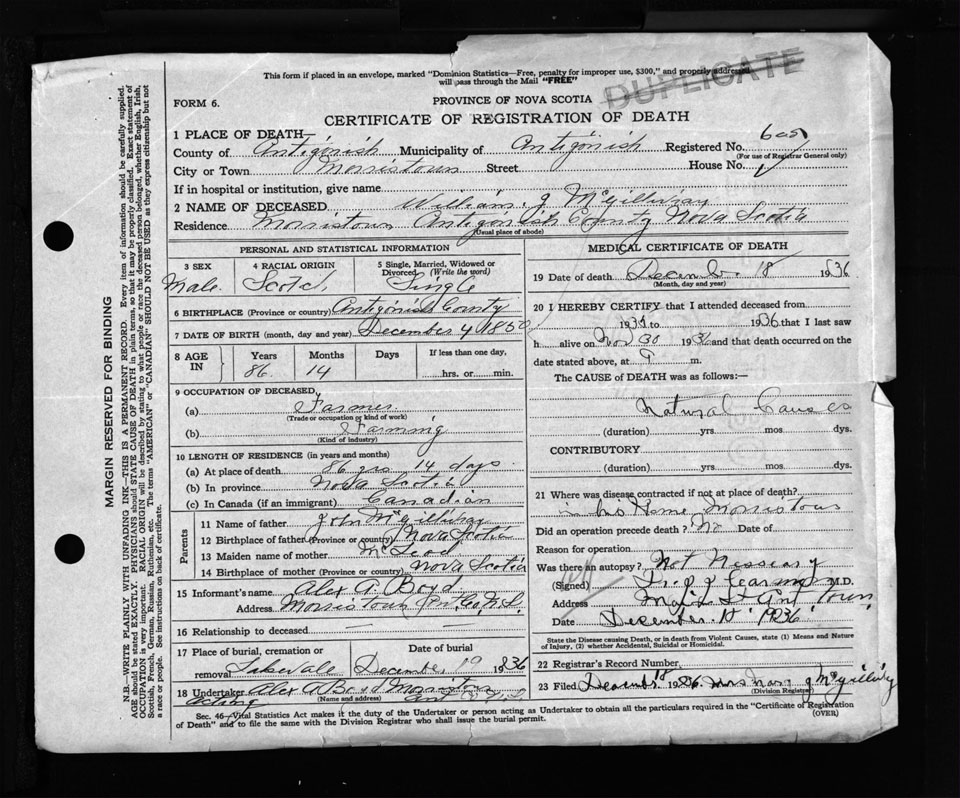 This form if placed in an envelope, marked "Dominion Statistics—Free, penalty for improper use, $300," and properly addressed
will pass through the Mail "FREE"
DUPLICATE
FORM 6.
PROVINCE OF NOVA SCOTIA
CERTIFICATE OF REGISTRATION OF DEATH
1 PLACE OF DEATH—
County of Antigonish Municipality of Antigonish Registered No. 605
(For use of Registrar General only)
City or Town Morristown Street House No.
If in hospital or institution, give name
2 NAME OF DECEASED William J McGillivray
Residence Morristown Antigonish County Nova Scotia
(Usual place of abode)
PERSONAL AND STATISTICAL INFORMATION
3 SEX 4 RACIAL ORIGIN 5 Single, Married, Widowed or Divorced (Write the word)
Male Scotch Single
6 BIRTHPLACE (Province or country) Antigonish County
7 DATE OF BIRTH (month, day and year) December 4 1850
8 AGE IN Years Months Days If less than one day,
86 14 hrs. or min.
9 OCCUPATION OF DECEASED
(a) Farmer
(Trade or occupation or kind of work)
(b) Farming
(Kind of industry)
10 LENGTH OF RESIDENCE (in years and months)
(a) At place of death 86 yrs 14 days
(b) In province Nova Scotia
(c) In Canada (if an immigrant) Canadian
Parents
11 Name of father John McGillivray
12 Birthplace of father (Province or country) Nova Scotia
13 Maiden name of mother McLeod
14 Birthplace of mother (Province or country) Nova Scotia
15 Informant's name Alex A Boyd
Address Morristown Ant. Co N.S.
16 Relationship to deceased
17 Place of burial, cremation or removal Date of burial
Lakevale December 19 1936
18 Undertaker Alex A Boyd Morristown
acting (Name and address)
MEDICAL CERTIFICATE OF DEATH
19 Date of death December 18 1936
(Month, day and year)
20 I HEREBY CERTIFY that I attended deceased from
1935 to 1936 that I last saw
h alive on Nov 30 1936 and that death occurred on the
date stated above, at 9 m.
The CAUSE of DEATH was as follows:—
Natural Causes
(duration) yrs. mos. dys.
CONTRIBUTORY
(duration) yrs. mos. dys.
21 Where was disease contracted if not at place of death?
in his Home Morristown
Did an operation precede death? No Date of
Reason for operation
Was there an autopsy? Not Nessary
(Signed) M.D.
Address
Date December 18 1936
State the Disease causing Death, or in death from Violent Causes, state (1) Means and Nature
of Injury, (2) whether Accidental, Suicidal or Homicidal.
22 Registrar's Record Number
23 Filed December 18 1936 Mrs J McGillivray
(Division Registrar)
Sec. 46—Vital Statistics Act makes it the duty of the Undertaker or person acting as Undertaker to obtain all the particulars required in the "Certificate of Registration
of Death" and to file the same with the Division Registrar who shall issue the burial permit.
(OVER)
MARGIN RESERVED FOR BINDING
N.B.—WRITE PLAINLY WITH UNFADING INK—THIS IS A PERMANENT RECORD. Every item of information should be carefully supplied.
AGE should be stated EXACTLY. PHYSICIANS should STATE CAUSE OF DEATH in plain terms, so that it may be properly classified. Exact statement of
OCCUPATION is very important. RACIAL ORIGIN will be described by stating to what people or race the deceased person belonged, whether English, Irish,
Scottish, French, German, Russian, Ruthenian, etc. The terms "AMERICAN" or "CANADIAN" SHOULD NOT BE USED as they express citizenship but not
a race or people. See instructions on back of certificate.